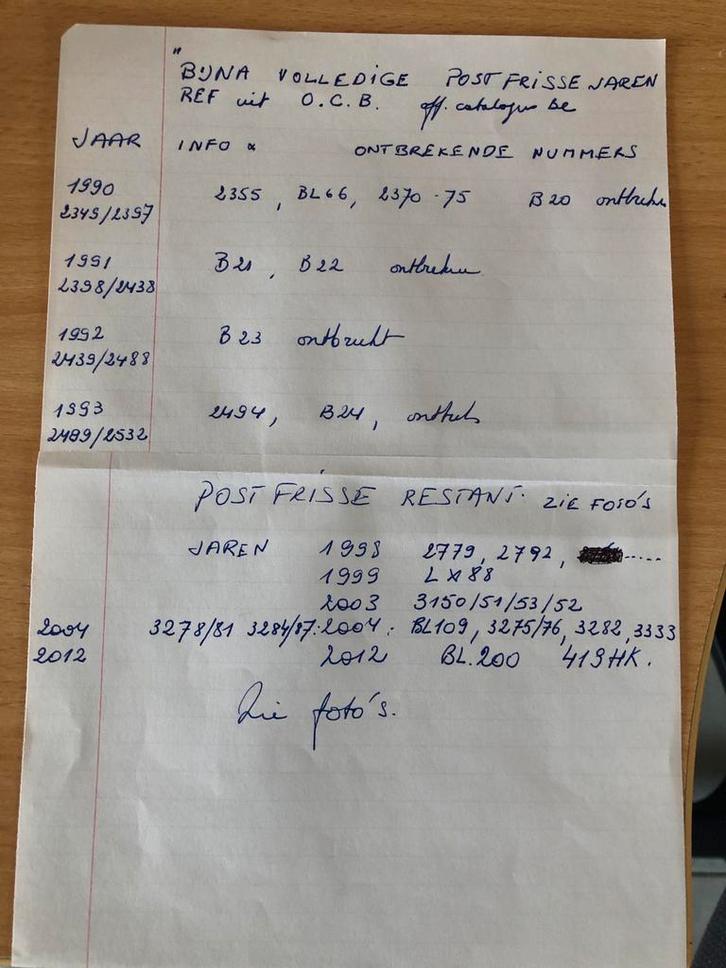 " BIJNA VOLLEDIGE POSTFRISSE JAREN
REF uit O.C.B. off. catalogus be
JAAR INFO ONTBREKENDE NUMMERS
1990 2355, BL66, 2370-75 B20 ontbreken
2349/2397
1991 B21, B22 ontbreken
2398/2438
1992 B23 ontbreekt
2439/2488
1993 2494, B24,
2489/2532
POSTFRISSE RESTANT. ZIE FOTO'S
JAREN 1998 2779, 2792, .....
1999 LX88
2003 3150/51/53/52
2004 3278/81 3284/87: 2004: BL109, 3275/76, 3282, 3333
2012 2012 BL.200 419HK.
Zie foto's.